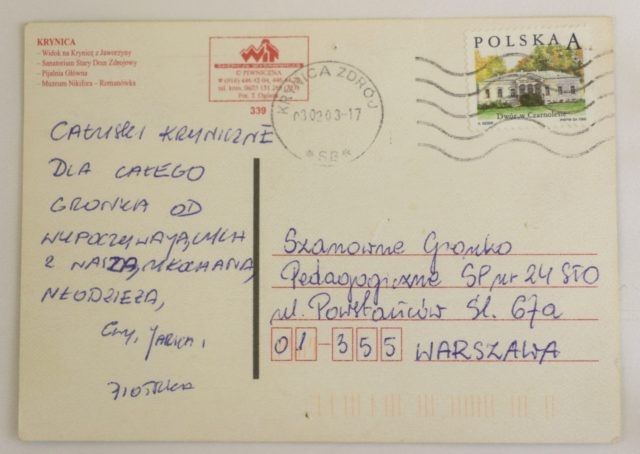 KRYNICA
- Widok na Krynicę z Jaworzyny
- Sanatorium Stary Dom Zdrojowy
- Pijalnia Główna
- Muzeum Nikifora - Romanówka
WiT
PIWNICZNA
339
KRYNICA ZDRÓJ
030203-17
*SB*
POLSKA A
Dwór w Czarnolesie
CAŁUSKI KRYNICZNE
DLA CAŁEGO
GRONKA OD
WYPOCZYWAJĄCYCH
Z NASZĄ UKOCHANĄ
MŁODZIEŻĄ,
Szanowne Gronko
Pedagogiczne SP nr 24 STO
ul. Powstańców Śl. 67a
01-355 WARSZAWA